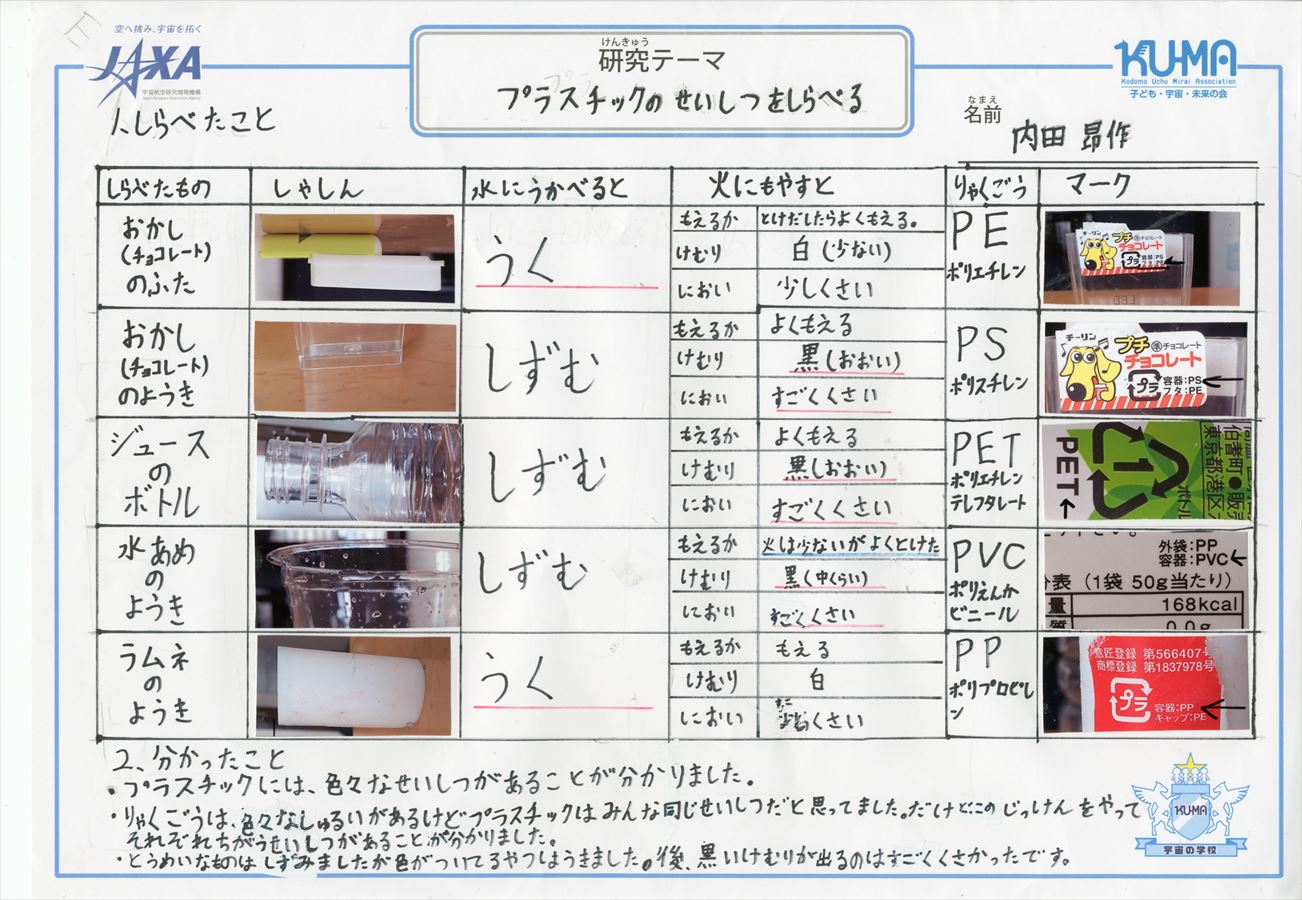 空へ挑み、宇宙を拓く
JAXA
宇宙航空研究開発機構
Japan Aerospace Exploration Agency
けんきゅう
研究テーマ
プラスチックのせいしつをしらべる
KU-MA
Kodomo Uchu Mirai Association
子ども・宇宙・未来の会
なまえ
名前
内田 昂作
1、しらべたこと
しらべたもの しゃしん 水にうかべると 火にもやすと りゃくごう マーク
おかし
(チョコレート)
のふた
うく
もえるか とけだしたらよくもえる。
けむり 白(少ない)
におい 少しくさい
PE
ポリエチレン
チーリン
プチ チョコレート
プラ 容器:PS
フタ:PE
おかし
(チョコレート)
のようき
しずむ
もえるか よくもえる
けむり 黒(おおい)
におい すごくくさい
PS
ポリスチレン
チーリン
プチ 準チョコレート
チョコレート
プラ 容器:PS
フタ:PE
ジュース
の
ボトル
しずむ
もえるか よくもえる
けむり 黒(おおい)
におい すごくくさい
PET
ポリエチレン
テレフタレート
PET
1
ボトル
伯耆町●販売
東京都港区
水あめ
の
ようき
しずむ
もえるか 火は少ないがよくとけた
けむり 黒(中くらい)
しておい すごくくさい
PVC
ポリえんか
ビニール
外袋:PP
容器:PVC
表(1袋 50g当たり)
量 168kcal
質 0.0g
ラムネ
の
ようき
うく
もえるか もえる
けむり 白
におい くさい
PP
ポリプロピレ
ン
意匠登録 第566407号
商標登録 第1837978号
プラ 容器:PP
キャップ:PE
2、分かったこと
・プラスチックには、色々なせいしつがあることが分かりました。
・りゃくごうは、色々なしゅるいがあるけどプラスチックはみんな同じせいしつだと思ってました。だけどこのじっけんをやって
それぞれちがうせいしつがあることが分かりました。
・とうめいなものはしずみましたが色がついてるやつはうきました。後、黒いけむりが出るのはすごくくさかったです。
KU-MA
宇宙の学校